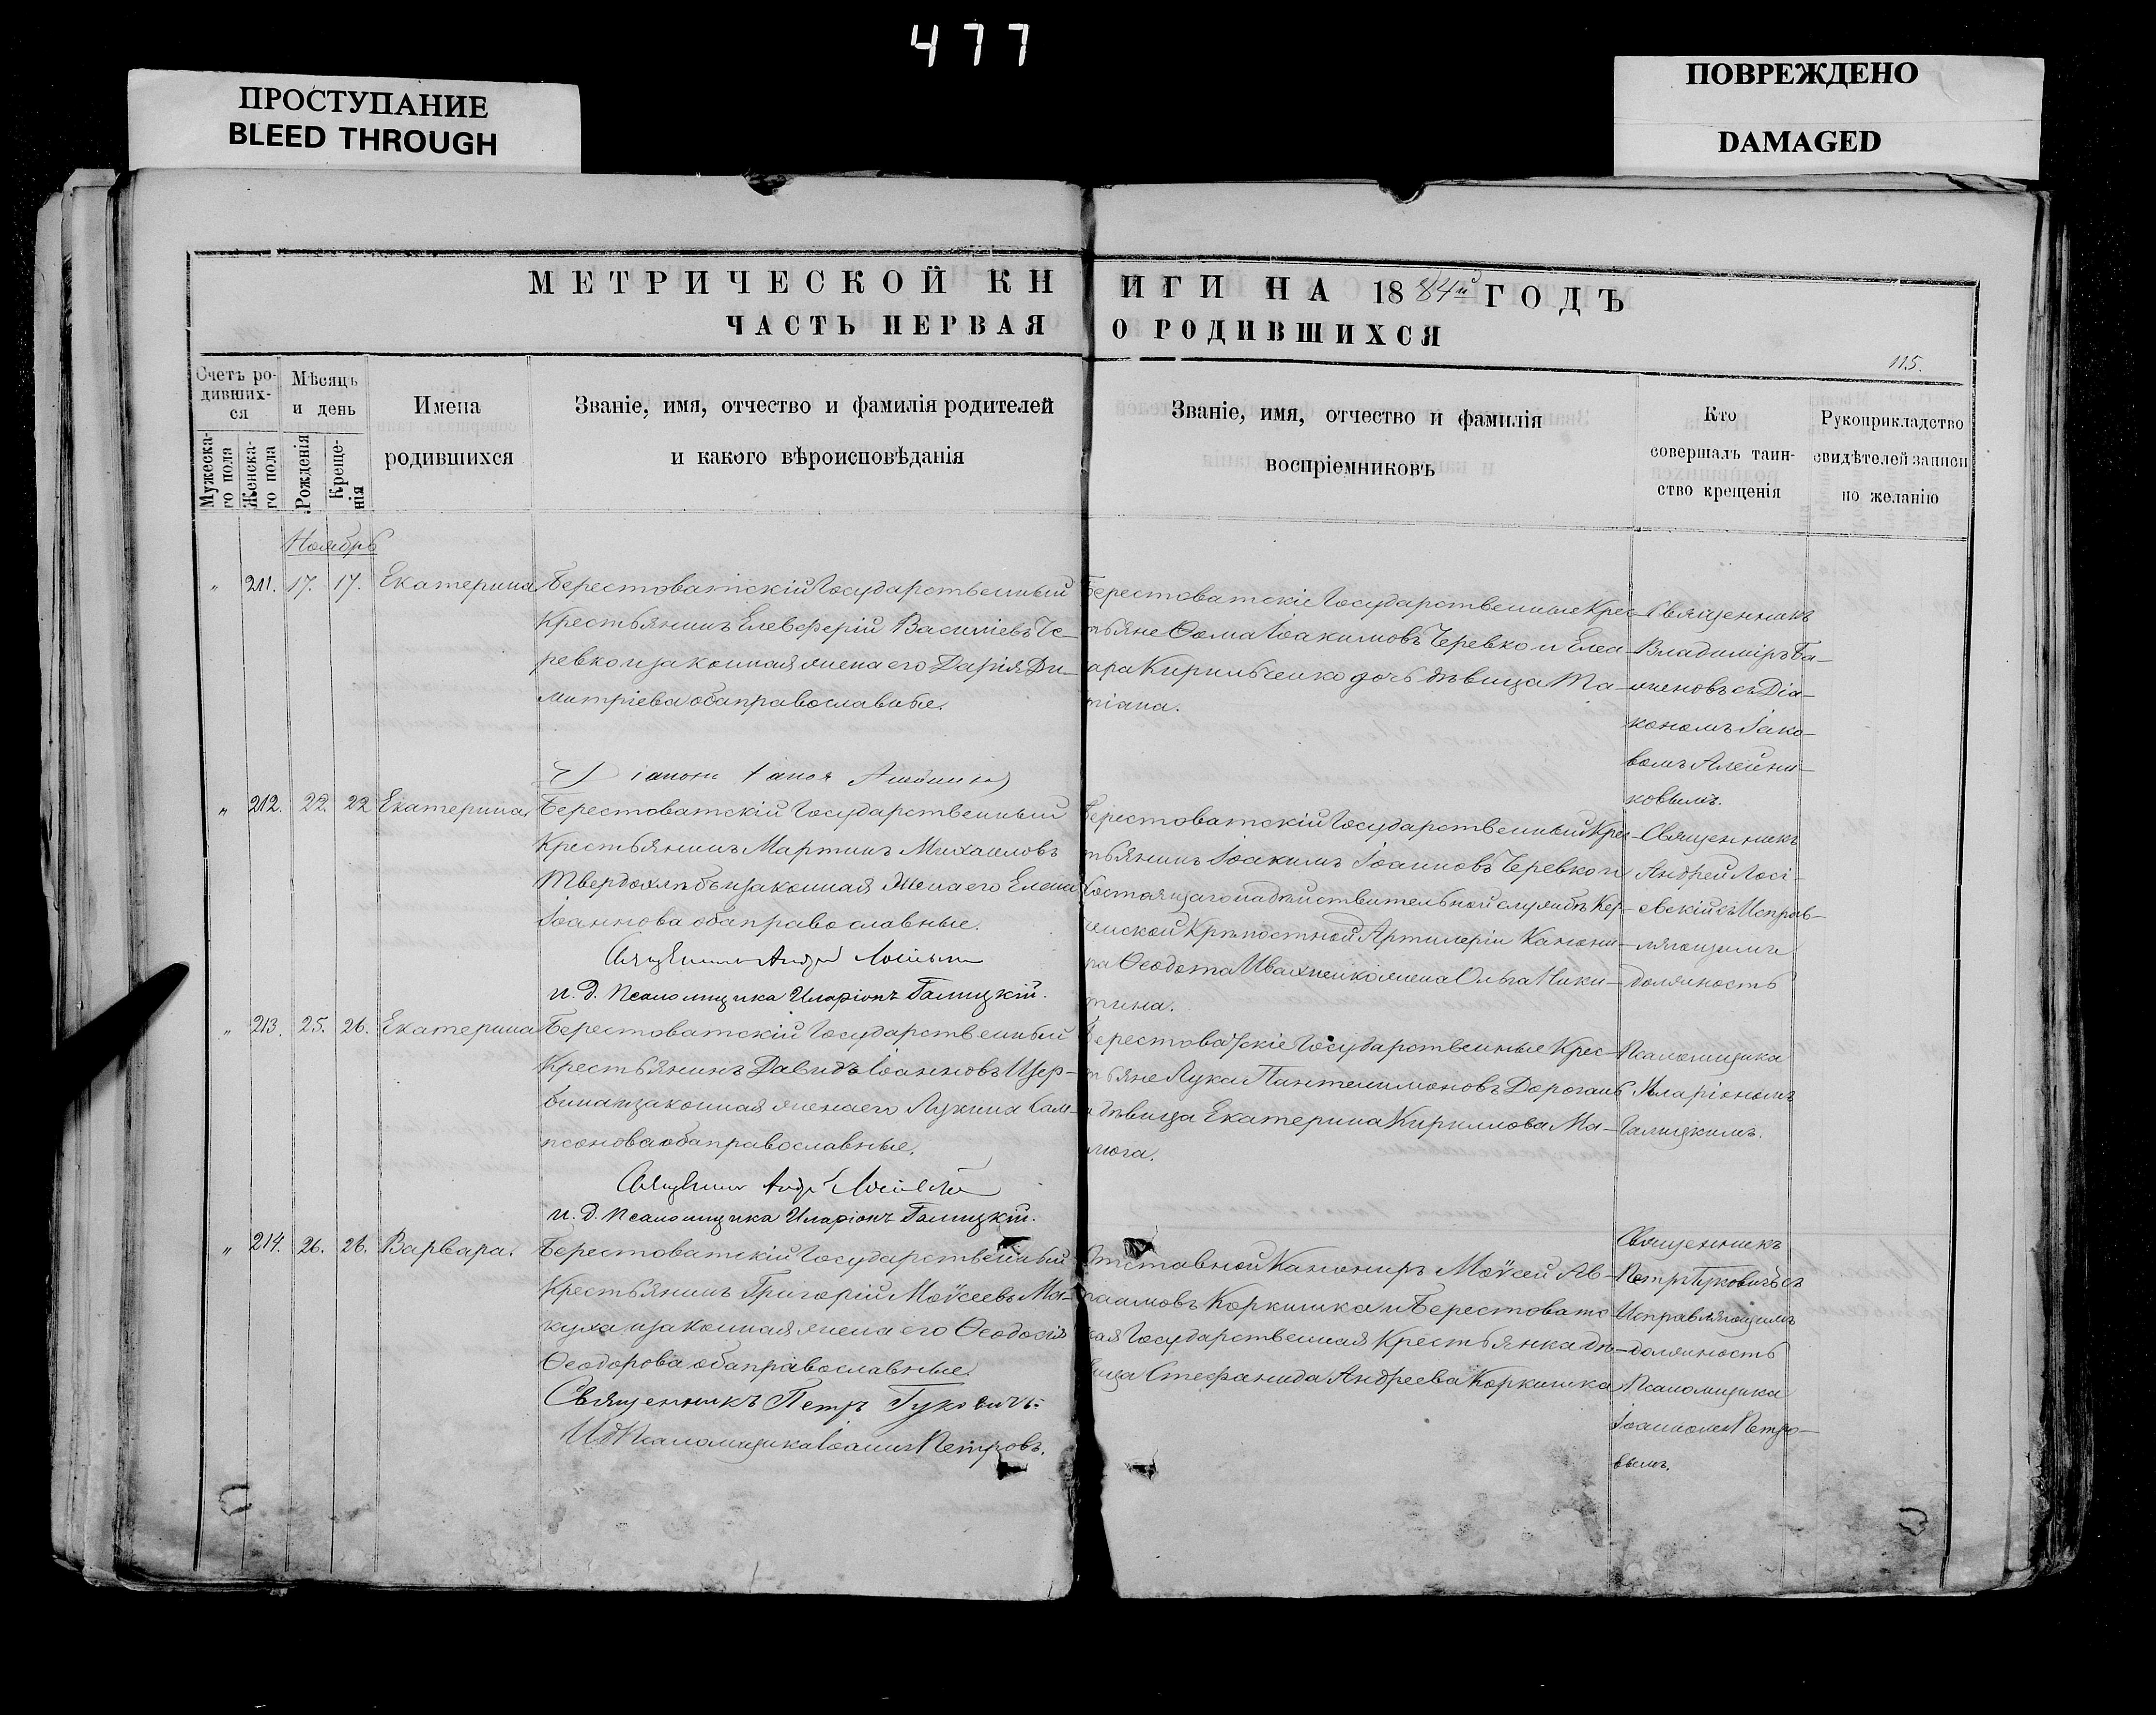 477
ПРОСТУПАНИЕ
BLEED THROUGH
ПОВРЕЖДЕНО
DAMAGED
МЕТРИЧЕСКОЙ КНИГИ НА 1884й ГОДЪ
ЧАСТЬ ПЕРВАЯ О РОДИВШИХСЯ
115.
Счетъ ро-
дивших-
ся
Мужеска-
го пола
Женска-
го пола
Мѣсяцъ
и день
Рожденія
Креще-
нія
Имена
родившихся
Званіе, имя, отчество и фамилія родителей
и какого вѣроисповѣданія
Званіе, имя, отчество и фамилія
воспріемниковъ
Кто
совершалъ таин-
ство крещенія
Рукоприкладство
свидѣтелей записи
по желанію
Ноябрь
„ 211. 17. 17. Екатерина
Берестоватскій Государственный
Крестьянинъ Елевферій Василіевъ Че-
ревко и законная жена его Дарія Ди-
митріева оба православные.
Берестоватскіе Государственные Крес-
тьяне Ѳома Іоакимовъ Черевко и Елеа-
зара Кирильченко дочь дѣвица Та-
тіана.
Священникъ
Владиміръ Ба-
женовъ съ Діа-
кономъ Іако-
вомъ Алейни-
ковымъ.
„ 212. 22. 22 Екатерина
Берестоватскій Государственный
Крестьянинъ Мартинъ Михаиловъ
Твердохлѣбъ и законная жена его Елена
Іоаннова оба православные.
и. д. Псаломщика Иларіонъ Галицкій.
Берестоватскій Государственный Крес-
тьянинъ Іоакимъ Іоанновъ Черевко и
состоящаго на дѣйствительной службѣ Кер-
ченской Крѣпостной Артилеріи Канони-
ра Ѳеодота Ивахненко жена Ольга Ники-
тина.
Священникъ
Андрей Лосі-
евскій съ Исправ-
ляющимъ
должность
Псаломщика
Иларіономъ
Галицкимъ.
„ 213. 25. 26. Екатерина
Берестоватскій Государственный
Крестьянинъ Давидъ Іоанновъ Щер-
бина и законная жена его Лукина Сам-
псонова оба православные.
и. д. Псаломщика Иларіонъ Галицкій.
Берестоватскіе Государственные Крес-
тьяне Лука Пантелимоновъ Дорогань
и дѣвица Екатерина Кириллова Ма-
люга.
„ 214. 26. 26. Варвара.
Берестоватскій Государственный
Крестьянинъ Григорій Моѵсеевъ Ма-
куха и законная жена его Ѳеодосія
Ѳеодорова оба православные.
Священникъ Петръ Гуковичъ
Ид Псаломщика Іоаннъ Петровъ.
Отставной Канониръ Моѵсей Ав-
раамовъ Коркишка и Берестоватс-
кая Государственная Крестьянка дѣ-
вица Стефанида Андреева Коркишка
Священникъ
Петръ Гуковичъ съ
Исправляющимъ
должность
Псаломщика
Іоанномъ Петро-
вымъ.